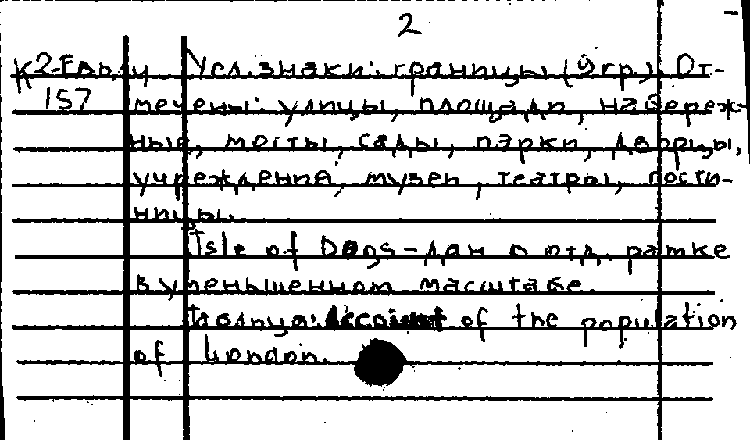 2
К2-Евл/4 Усл. знаки: границы (9 гр). От-
157 мечены: улицы, площади, набереж-
ные, мосты, сады, парки, дворцы,
учреждения, музеи, театры, гости-
ницы.
Isle of Dogs – дан в отд. рамке
в уменьшенном масштабе.
Таблица: Account of the population
of London.